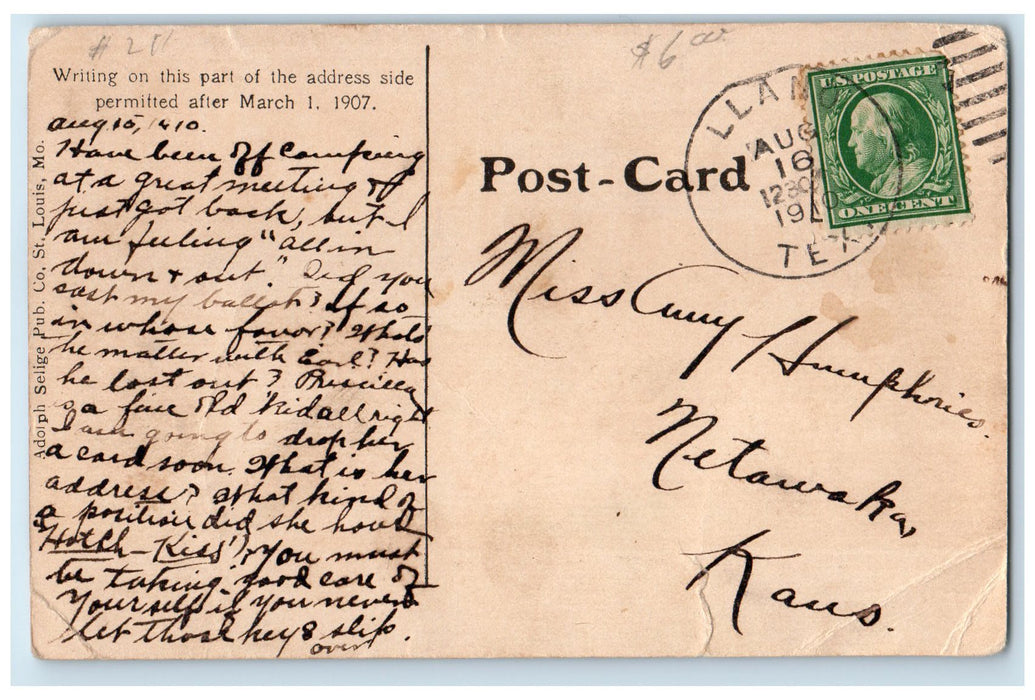 # 211
$6.00
Writing on this part of the address side
permitted after March 1, 1907.
Aug 15, 1910.
Have been off Campuing
at a great meeting &
just got back, but I
am feeling "all in
down & out." Did you
cast my ballot? If so
in whose favor? What's
the matter with Earl? Has
he lost out? Priscilley
is a fine old kid all right
I am going to drop her
a card soon. What is her
address? What kind of
a position did she have
"Hotch-Kiss"? You must
be taking good care of
Yourself if you never
let those key's slip.
over
Adolph Selige Pub. Co. St. Louis, Mo.
Post-Card
LLANO
AUG
16
1230
1910
TEX.
U.S. POSTAGE
ONE CENT
Miss Amy Humphries.
Netawaka,
Kans.